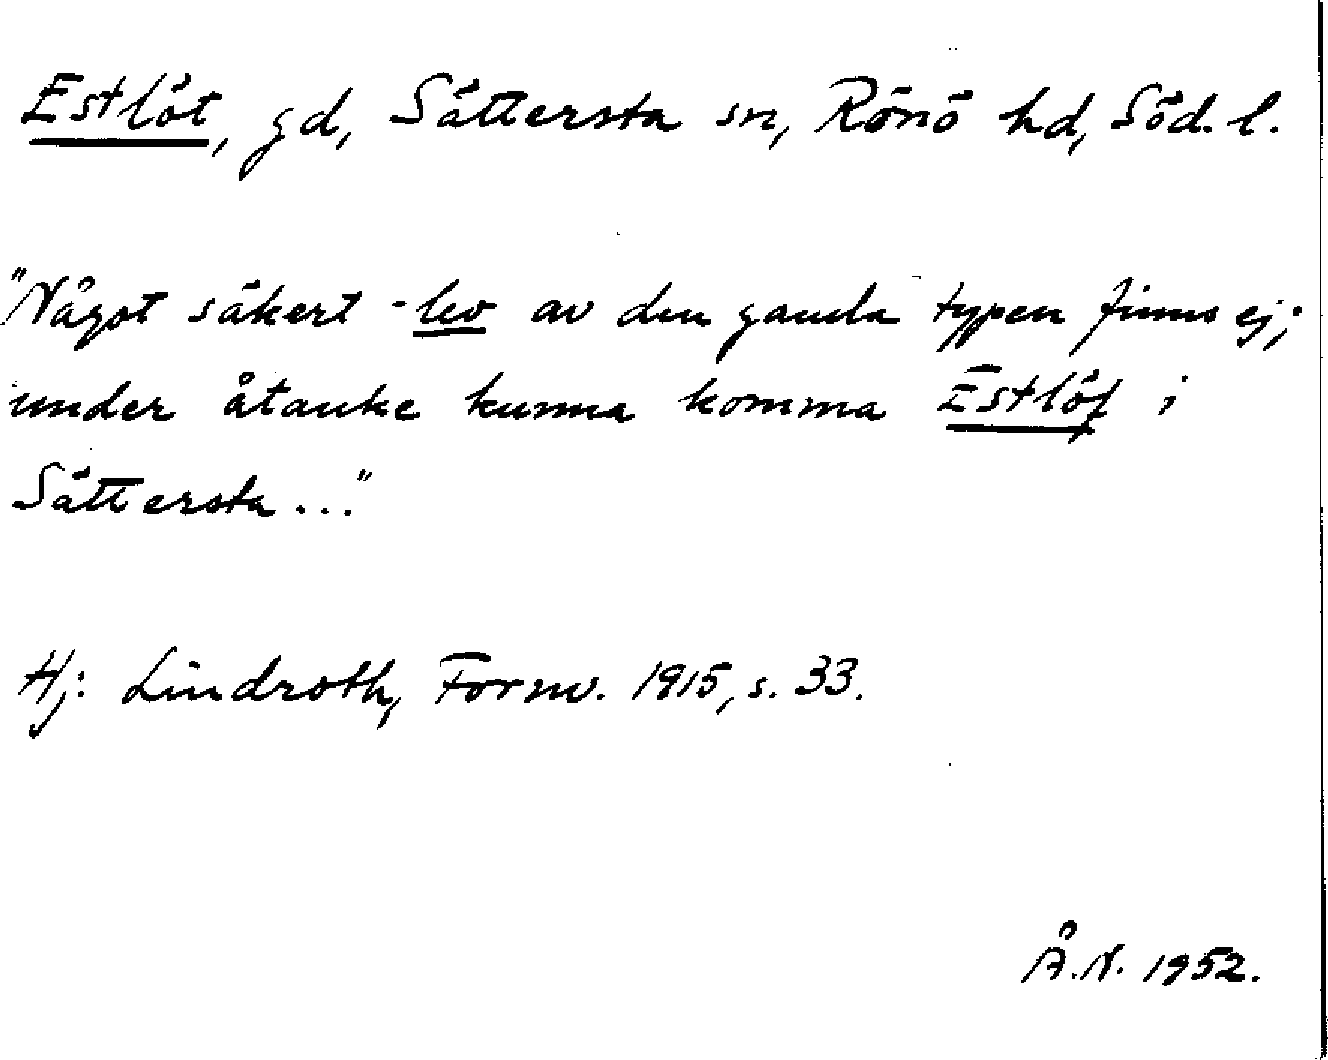 Estlöt, gd, Sättersta sn, Rönö hd, Söd. l.
"Något säkert -lev av den gamla typen finns ej;
under åtanke kunna komma Estlöf i
Sättersta..."
Hj. Lindroth, Fornv. 1915, s. 33.
Å.N. 1952.